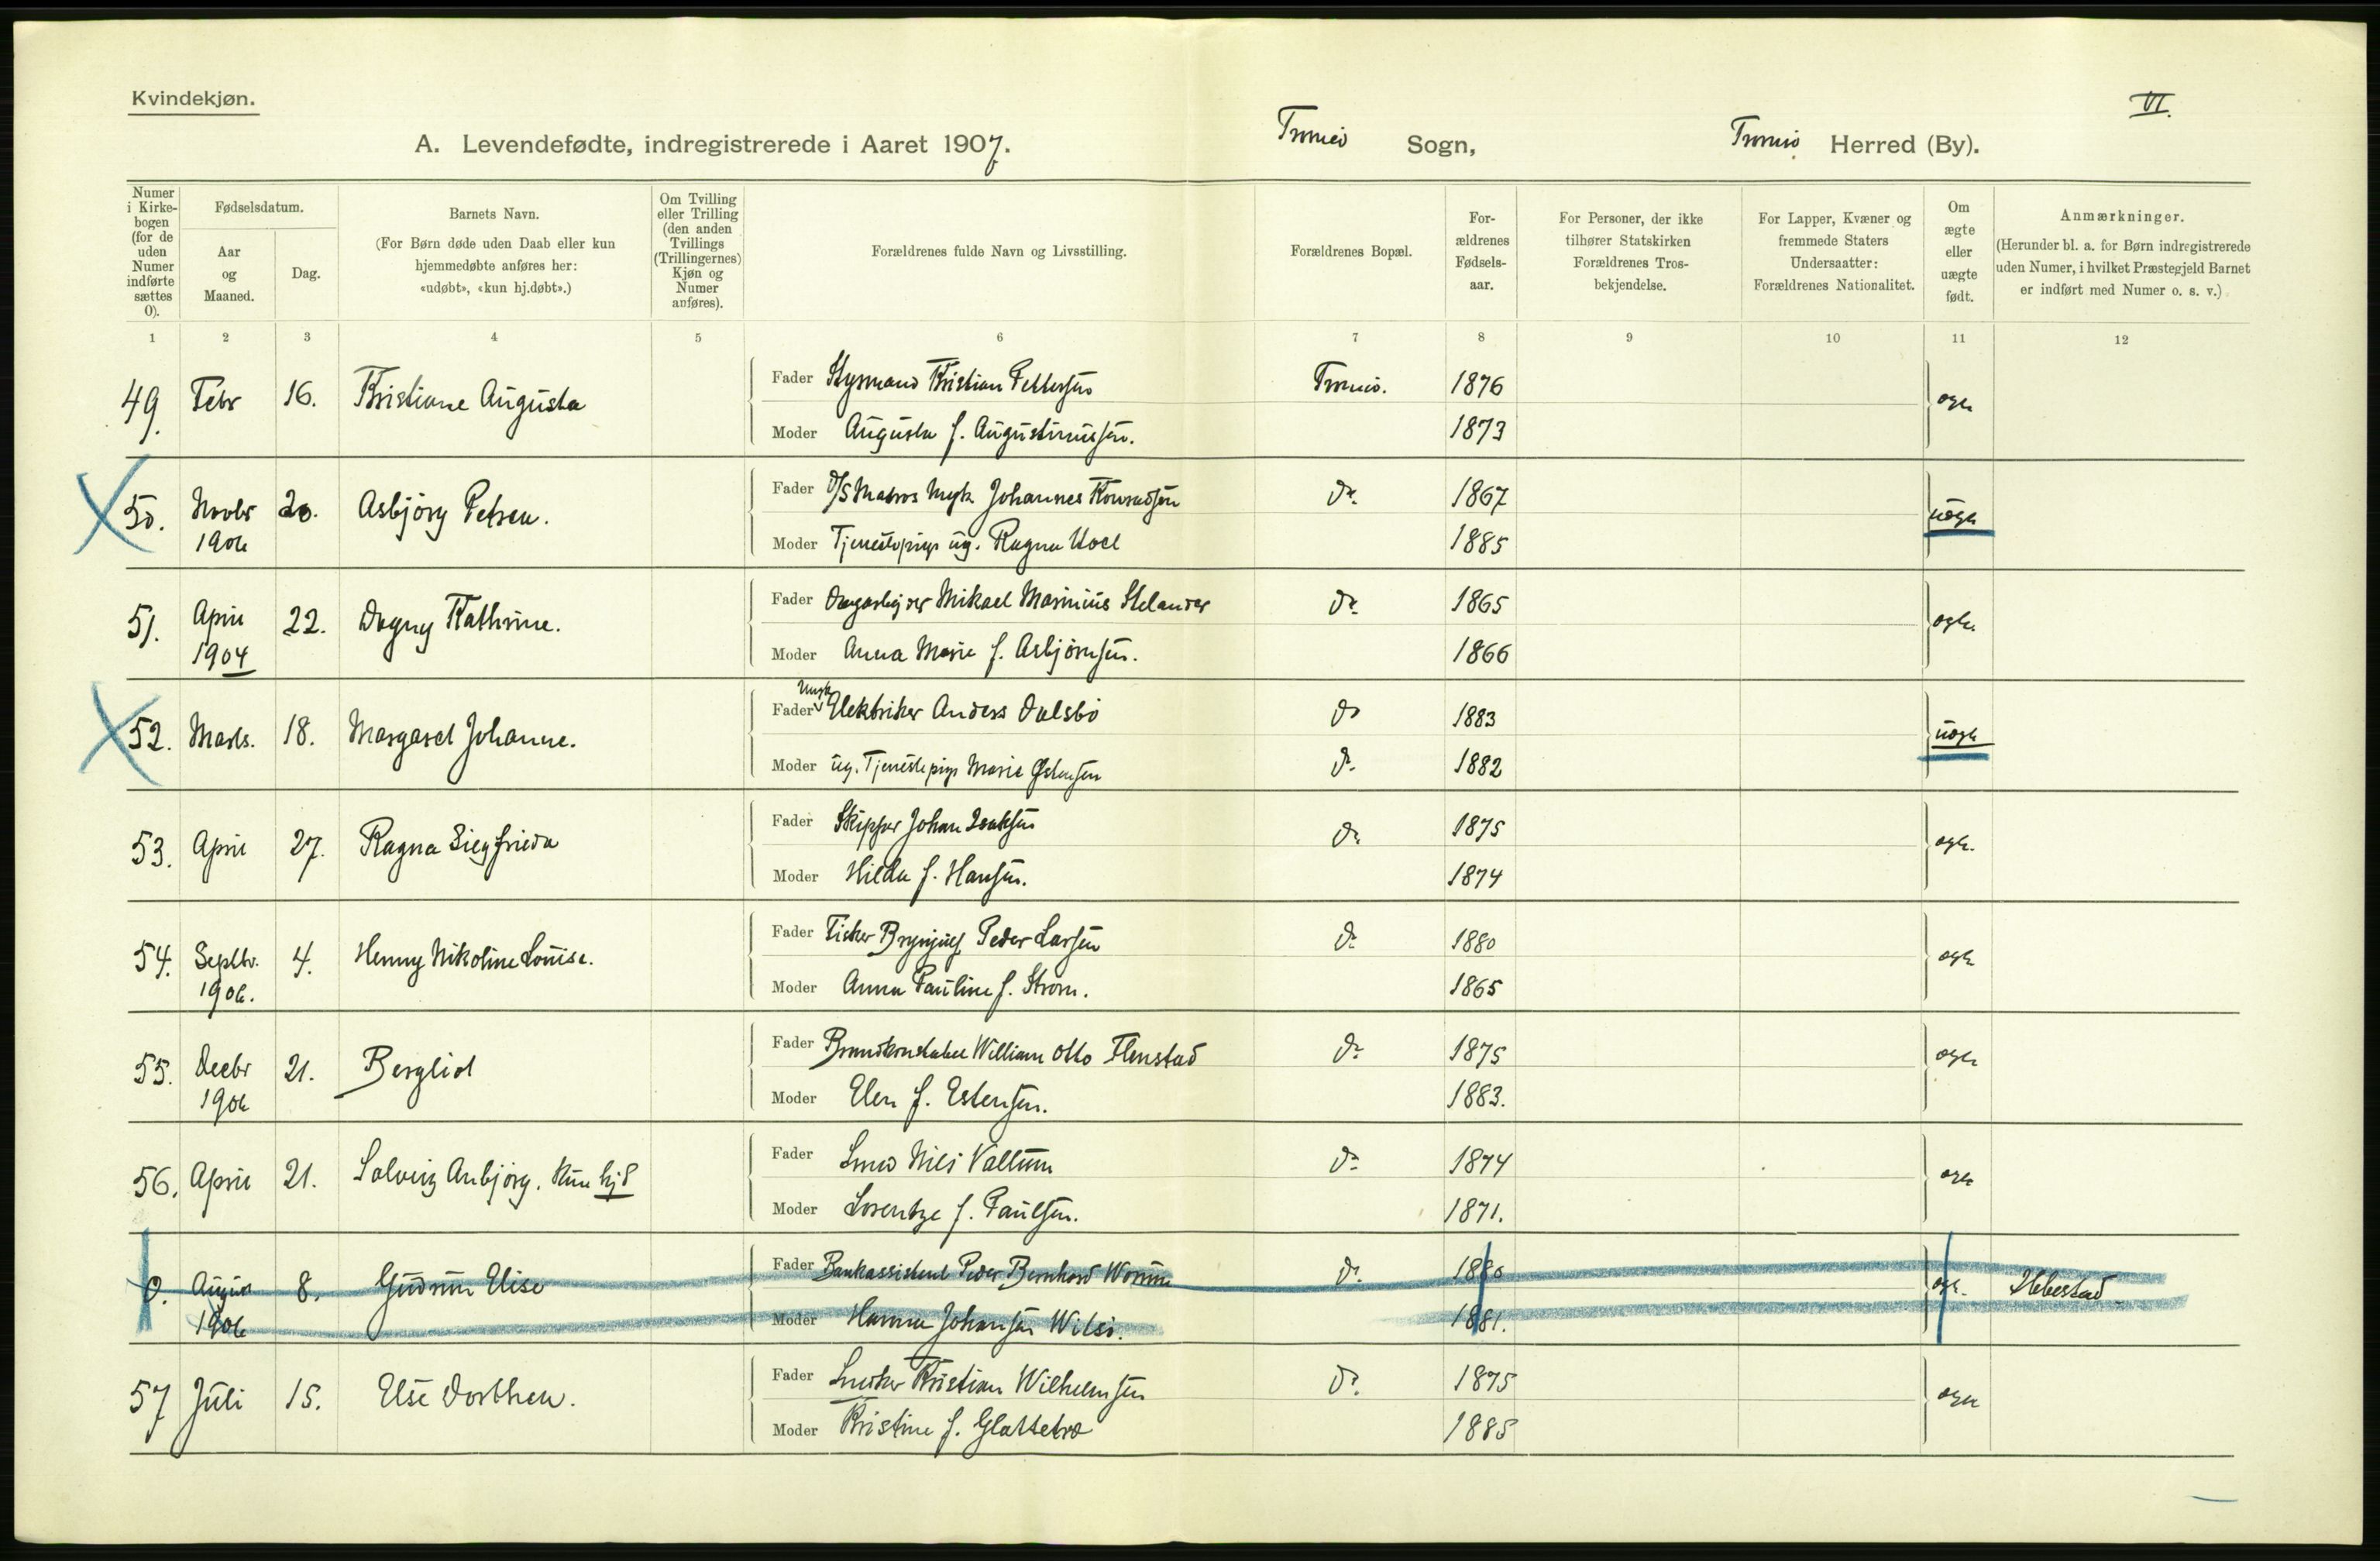 Kvindekjøn.
VI.
A. Levendefødte, indregistrerede i Aaret 1907.
Tromsø Sogn, Tromsø Herred (By).
Numer
i Kirke-
bogen
(for de
uden
Numer
indførte
sættes
0).
Fødselsdatum.
Aar
og
Maaned.
Dag.
Barnets Navn.
(For Børn døde uden Daab eller kun
hjemmedøbte anføres her:
«udøbt», «kun hj.døbt».)
Om Tvilling
eller Trilling
(den anden
Tvillings
(Trillingernes)
Kjøn og
Numer
anføres).
Forældrenes fulde Navn og Livsstilling.
Forældrenes Bopæl.
For-
ældrenes
Fødsels-
aar.
For Personer, der ikke
tilhører Statskirken
Forældrenes Tros-
bekjendelse.
For Lapper, Kvæner og
fremmede Staters
Undersaatter:
Forældrenes Nationalitet.
Om
ægte
eller
uægte
født.
Anmærkninger.
(Herunder bl. a. for Børn indregistrerede
uden Numer, i hvilket Præstegjeld Barnet
er indført med Numer o. s. v.)
1 2 3 4 5 6 7 8 9 10 11 12
49. Febr 16. Kristiane Augusta Fader Styrmand Kristian Pettersen Tromsø. 1876 ægte
Moder Augusta f. Augustinussen. 1873
50. Novbr 20. Asbjørg Petrea. Fader D/S Matros Ungk. Johannes Konradsen Do. 1867 uægte
1906 Moder Tjenestepige ug. Ragna Hoel 1885
51. April 22. Dagny Kathrine. Fader Mikael Marinius Helander Do. 1865 ægte.
1904 Moder Anna Marie f. Asbjørnsen. 1866
52. Marts. 18. Margaret Johanne. Fader Ungk. Elektriker Anders Dalsbø Do 1883 uægte
Moder ug. Tjenestepige Marie Østensen Do. 1882
53. April 27. Ragna Siegfrieda Fader Skipper Johan Isaksen Do. 1875 ægte.
Moder Hilda f. Hansen. 1874
54. Septbr. 4. Henny Nikoline Louise. Fader Fisker Brynjulf Peder Larsen Do. 1880 ægte
1906. Moder Anna Pauline f. Strøm. 1865
55. Decbr 21. Bergliot Fader Brandkonstabel William Otto Flenstad Do. 1875 ægte
1906 Moder Elen f. Estensen. 1883.
56. April 21. Solveig Anbjørg. Kun hjd Fader Smed Nils Vallum Do. 1874 ægte
Moder Lorentze f. Paulsen. 1871.
0. August 8. Gudrun Elise Fader Bankassistent Peder Bernhard Worum Do. 1880 ægte. Ibbestad
1906 Moder Hanna Johansen Wilsø. 1881.
57 Juli 15. Else Dorthea. Fader Snedker Kristian Wilhelmsen Do. 1875 ægte
Moder Kristine f. Glattetræ 1885